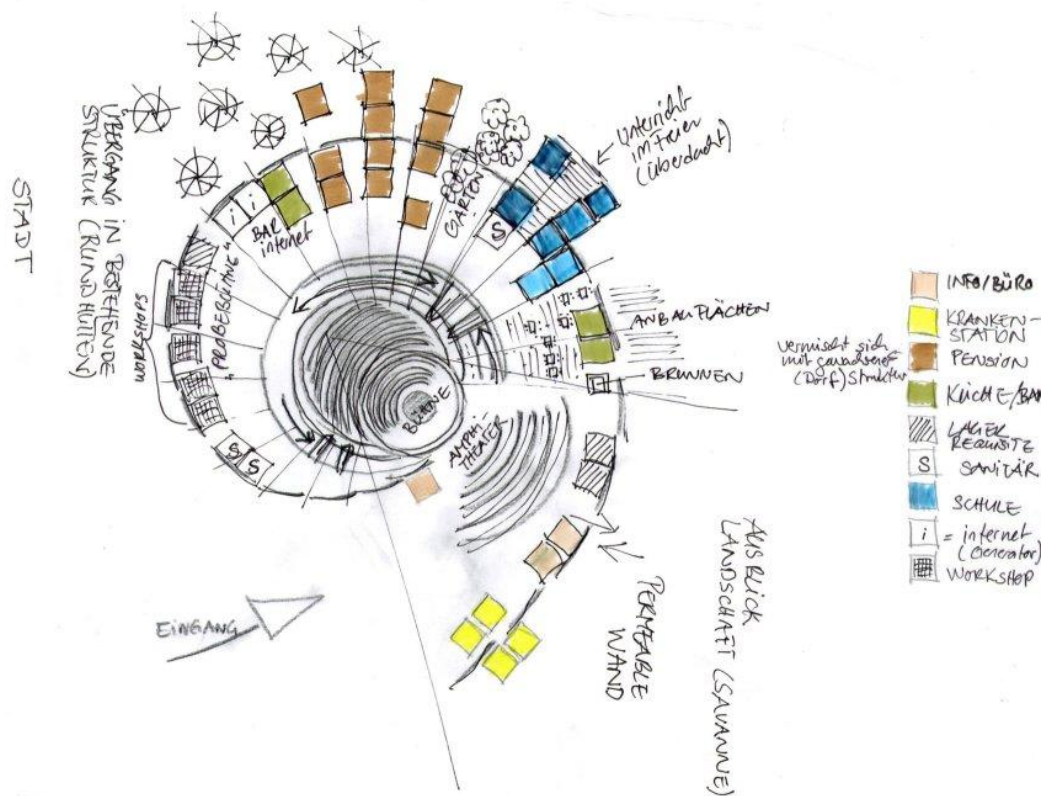 STADT
ÜBERGANG IN BESTEHENDE
STRUKTUR (RUNDHÜTTEN)
WORKSHOPS
"PROBEBEREICHE"
i
i
BAR
internet
GÄRTEN
S
Unterricht
im Freien
(überdacht)
ANBAUFLÄCHEN
BRUNNEN
vermischt sich
mit gewachsener
(Dorf) Struktur
BÜHNE
AMPHI-
THEATER
S
S
EINGANG
PERMEABLE
WAND
AUSBLICK
LANDSCHAFT (SAVANNE)
INFO/BÜRO
KRANKEN-
STATION
PENSION
KÜCHE/BAR
LAGER
REQUISITE
S
SANITÄR
SCHULE
i = internet
(Generator)
WORKSHOP